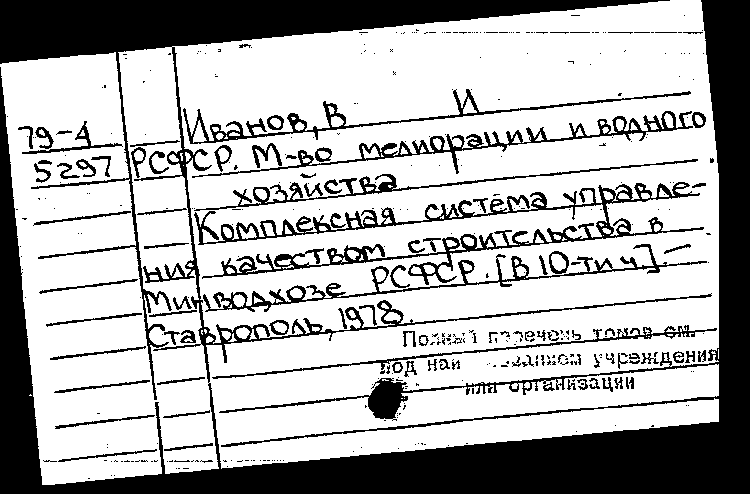 Иванов, В И
79-4
5297 РСФСР. М-во мелиорации и водного
хозяйства
Комплексная система управле-
ния качеством строительства в
Минводхозе РСФСР. [В 10-ти ч.]. –
Ставрополь, 1978.
Полный перечень томов см.
под учреждения
или организации